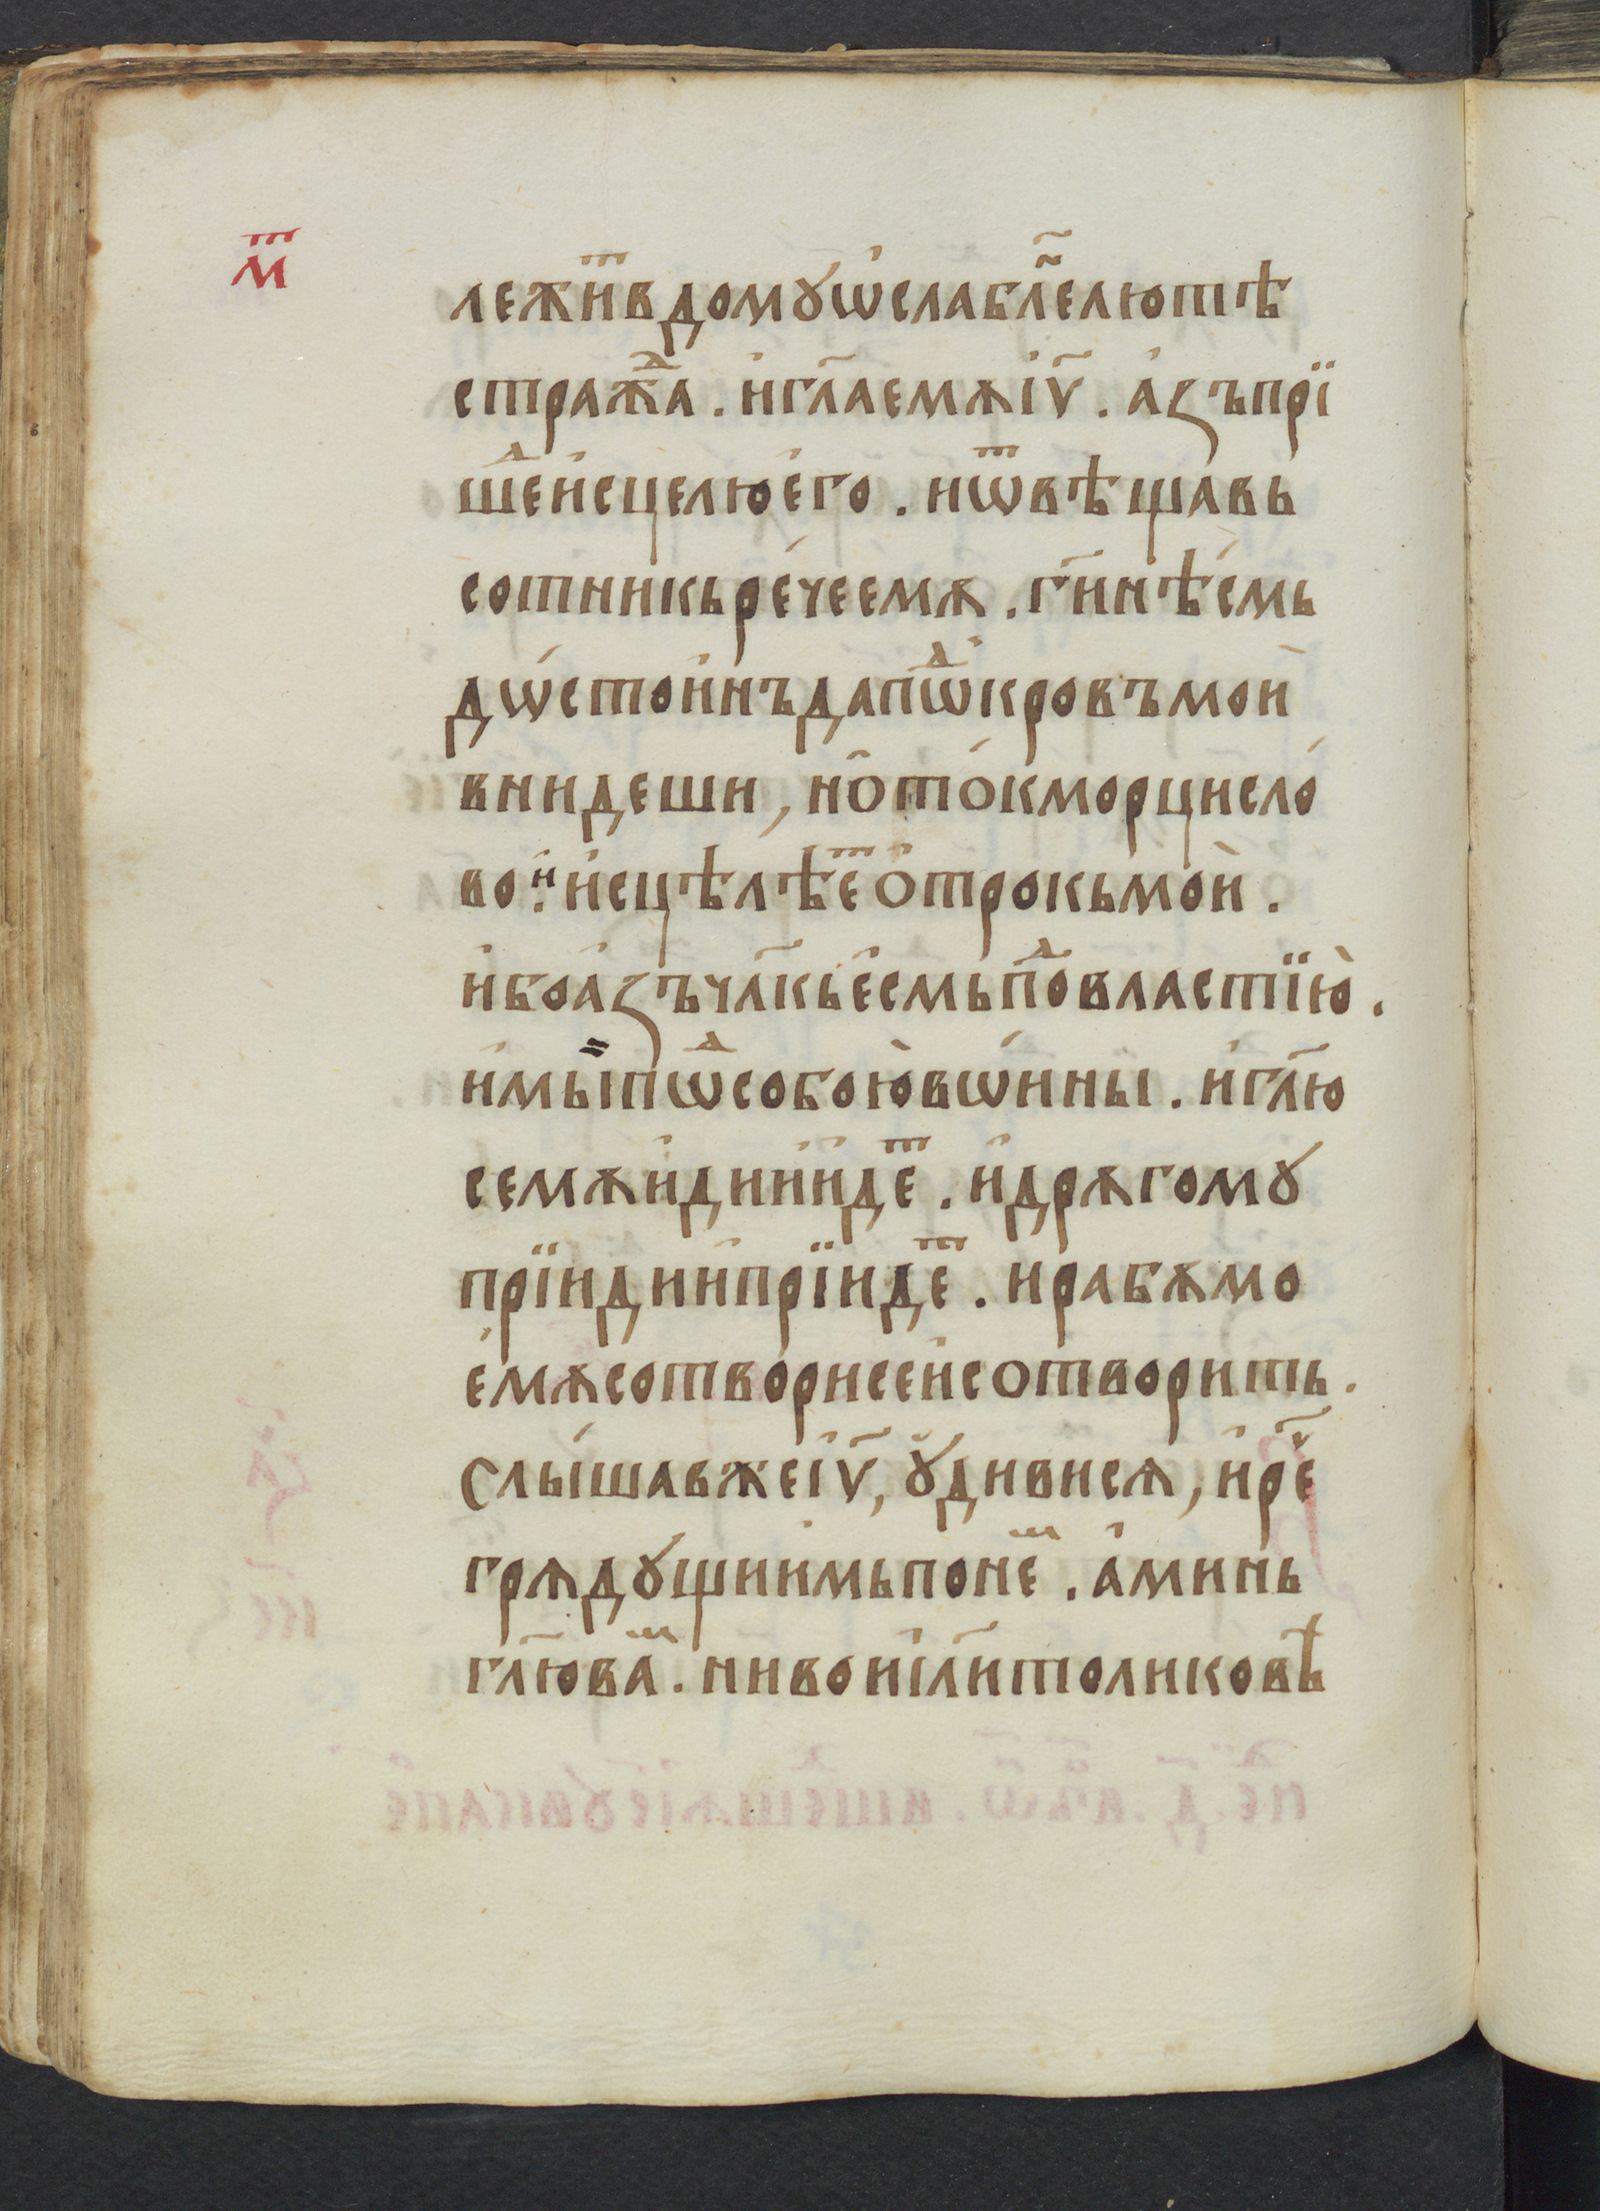 м҃т
лежи́тⷮвдомꙋѡ҆слабле҃лютѣ
стражⷣа . и҆гл҃аемѫі҆ѵ҃ . а҆зъпрїи
шеⷣи҆сцелюе҆го . иѿвѣщавь
сотникьре́чеемѫ . ги҃нѣ́смь
дѡ́стои́нъдапѡⷣкровъмои
внидеши , но̑то́кморцисло́
во . и и҆сцѣлѣеⷮо҆трокьмо́и .
и҆боа҆зъчл҃кье҆смьпоⷣвластїю̀ .
и҆мыпѡⷣсобою̀вѡ́ины . и҆гл҃ю
семѫи҆дии҆идеⷮ . и҆дрѫгомꙋ
прїидии҆прїидеⷮ . ирабѫмо
е́мѫсотво́рисеи҆сотворить .
слы́шавжеі҆ѵ҃ , ꙋ҆дивисѧ , и҆ре҃
грѧдꙋщиимьпонеⷨ . а҆минь
гл҃юваⷨ . нивои҆і҃литоликовѣ